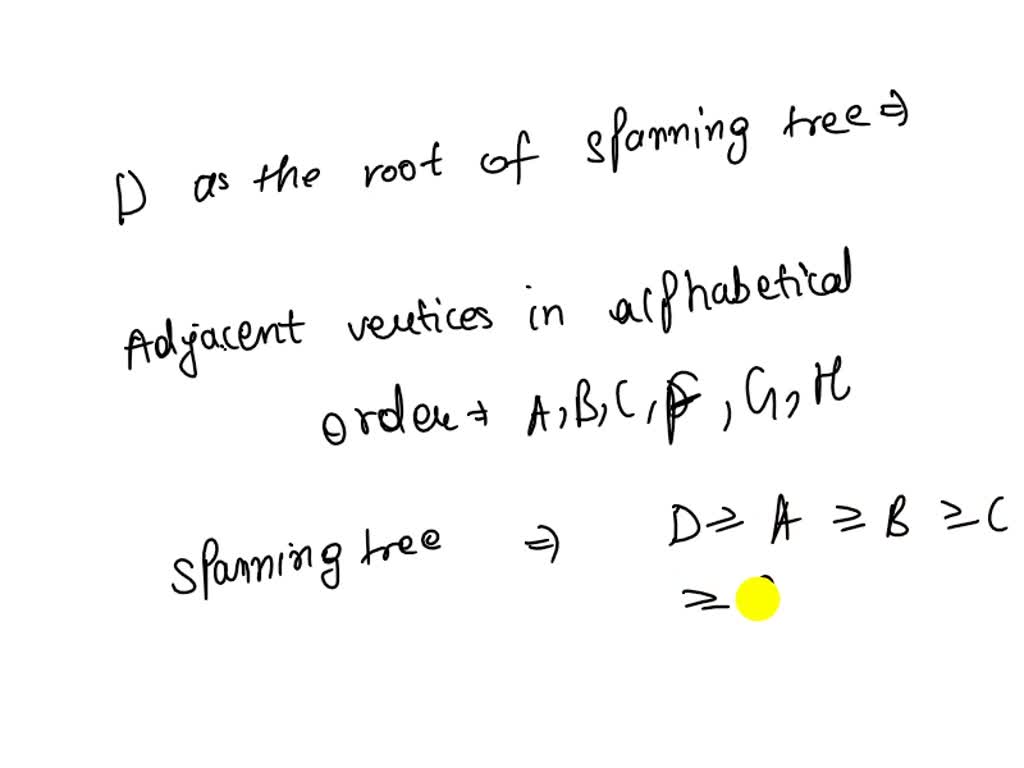 D as the root of spanning tree ⇒
Adjacent vertices in alphabetical
order ⇒ A, B, C, F, G, H
spanning tree ⇒ D ≥ A ≥ B ≥ C
≥